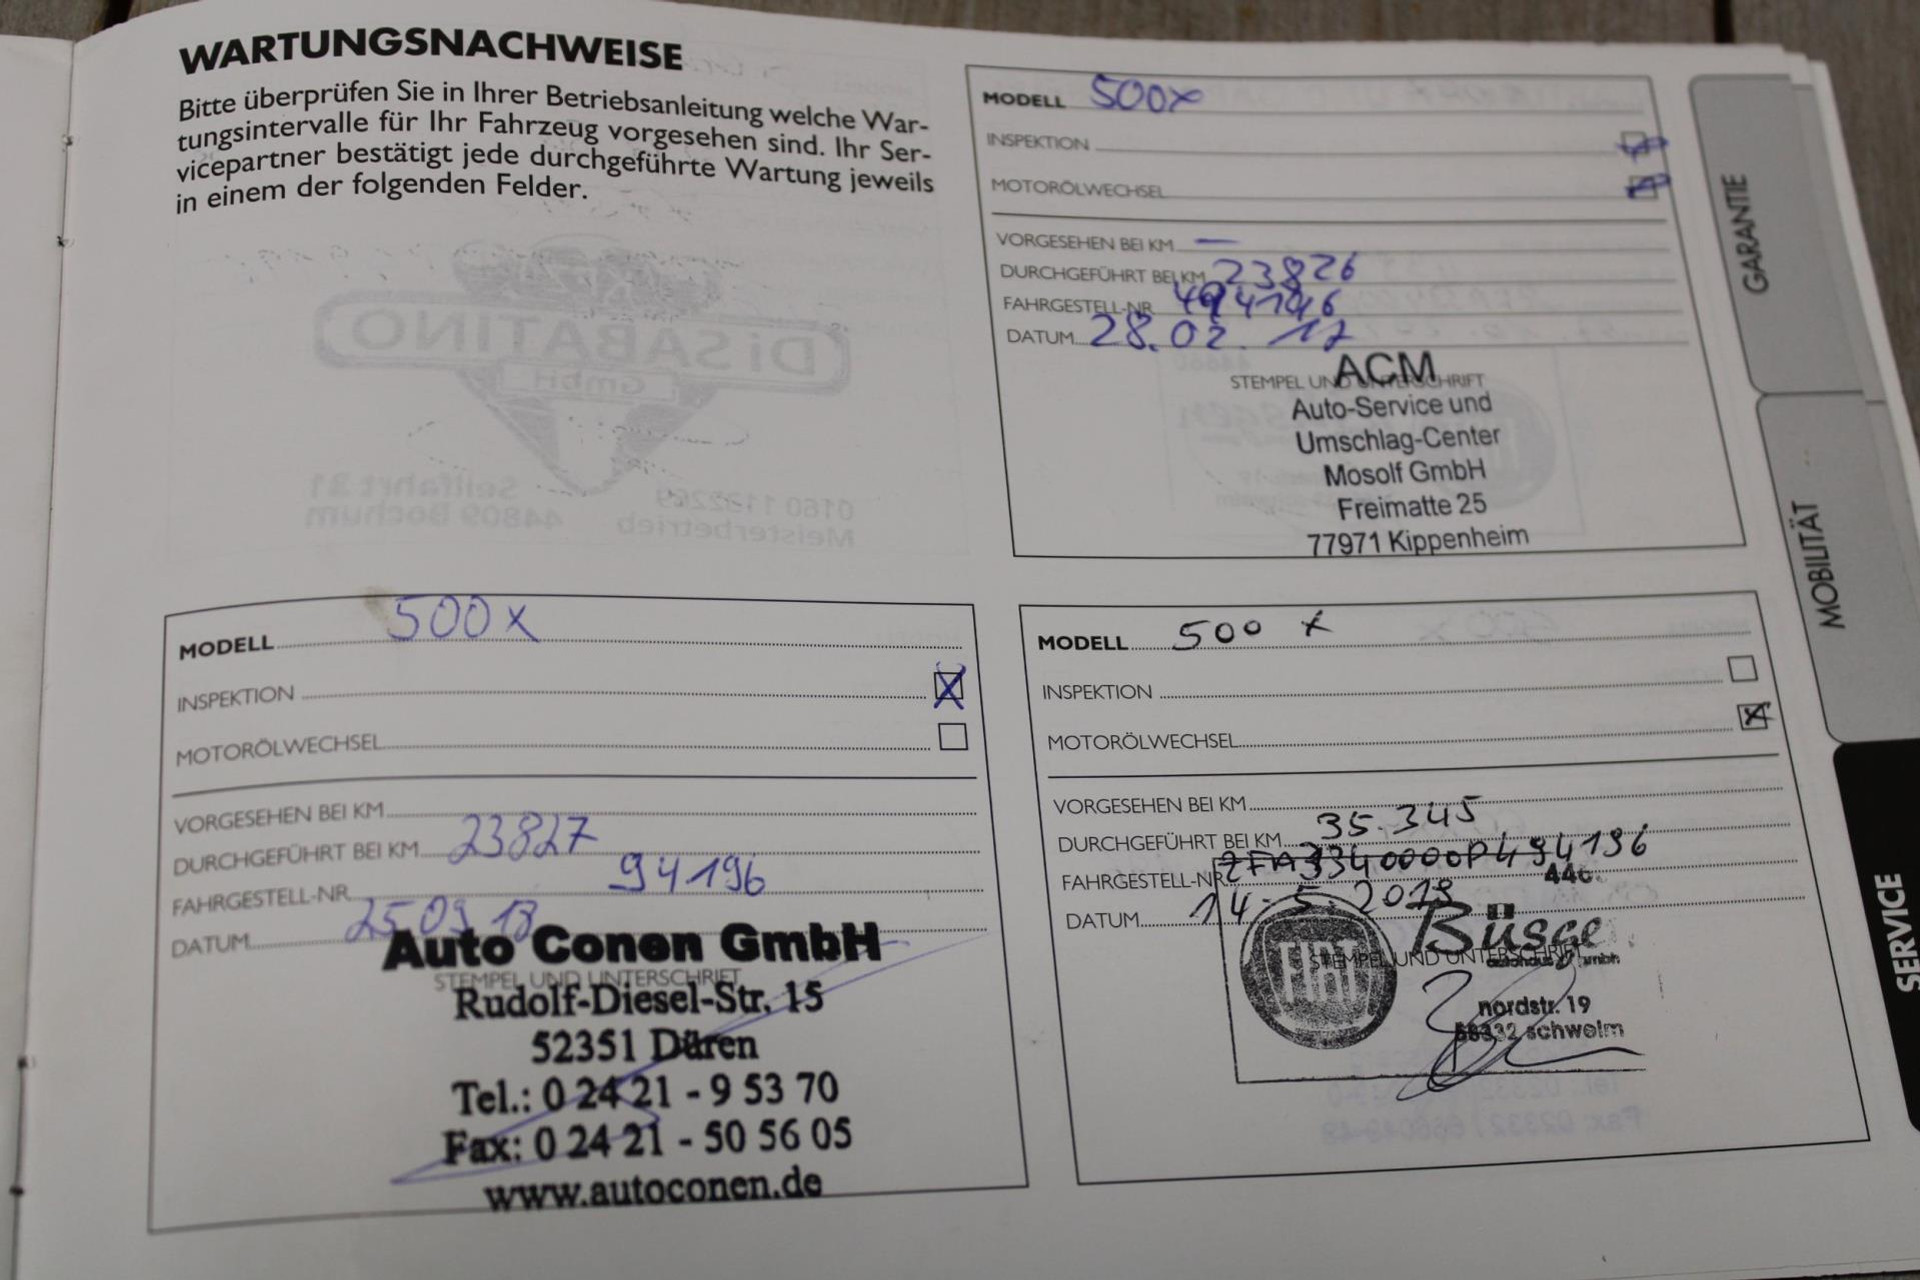 WARTUNGSNACHWEISE
Bitte überprüfen Sie in Ihrer Betriebsanleitung welche War-
tungsintervalle für Ihr Fahrzeug vorgesehen sind. Ihr Ser-
vicepartner bestätigt jede durchgeführte Wartung jeweils
in einem der folgenden Felder.
MODELL 500x
INSPEKTION
MOTORÖLWECHSEL
VORGESEHEN BEI KM —
DURCHGEFÜHRT BEI KM 23826
FAHRGESTELL-NR.
DATUM 28.02.17
STEMPEL UND UNTERSCHRIFT
ACM
Auto-Service und
Umschlag-Center
Mosolf GmbH
Freimatte 25
77971 Kippenheim
MODELL 500 x
INSPEKTION
MOTORÖLWECHSEL
VORGESEHEN BEI KM
DURCHGEFÜHRT BEI KM 23827
FAHRGESTELL-NR. 94196
DATUM 25.09.18
STEMPEL UND UNTERSCHRIFT
Auto Conen GmbH
Rudolf-Diesel-Str. 15
52351 Düren
Tel.: 0 24 21 - 9 53 70
Fax: 0 24 21 - 50 56 05
www.autoconen.de
MODELL 500 x
INSPEKTION
MOTORÖLWECHSEL
VORGESEHEN BEI KM
DURCHGEFÜHRT BEI KM 35.345
FAHRGESTELL-NR. ZFA3340000P494196
DATUM 14.5.2019
STEMPEL UND UNTERSCHRIFT
FIAT
Büsge
autohaus gmbh
nordstr. 19
58332 schwelm
GARANTIE
MOBILITÄT
SERVICE